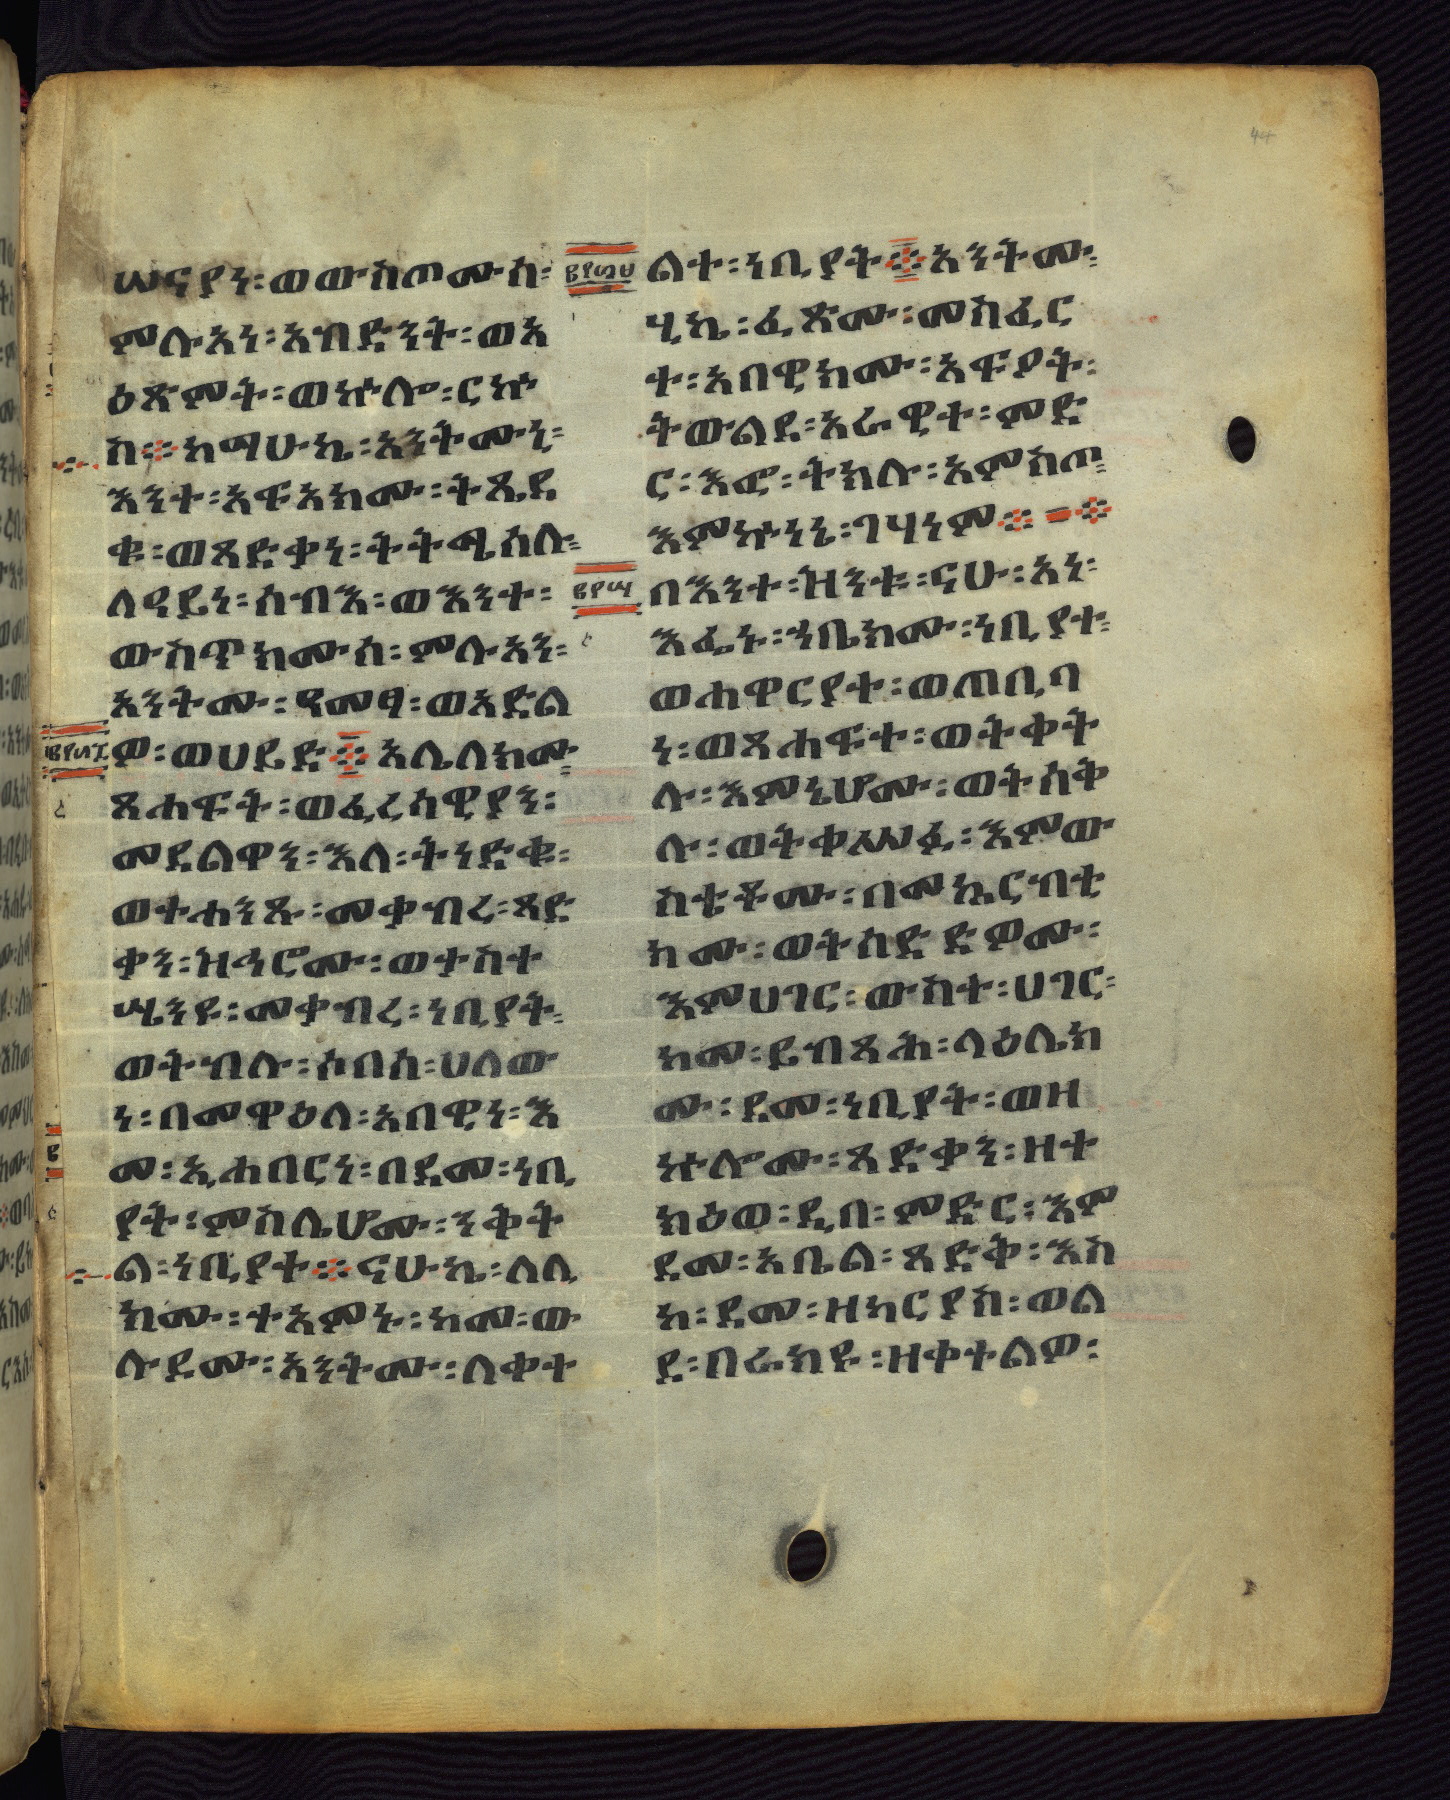 ሠናያን፡ወውስጦሙሰ፡
ምሉእነ፡አብድንት፡ወአ
ዕጽምት፡ወኵሎ፡ርኵ
ስ፨ከማሁኬ፡አንትሙኒ፡
እንተ፡አፍአክሙ፡ትጼደ
ቁ፡ወጻድቃነ፡ትትሜሰሉ፡
ለዓይነ፡ሰብእ፡ወእንተ፡
ውስጥክሙሰ፡ምሉአን፡
አንትሙ፡ዓመፃ፡ወአድል
ዎ፡ወሀይድ፨አሌለክሙ፡
ጸሐፍት፡ወፈሪሳዊያን፡
መደልዋን፡እለ፡ትነድቁ፡
ወተሐንጹ፡መቃብረ፡ጻድ
ቃን፡ዝኅሮሙ፡ወተስተ
ሤንዩ፡መቃብረ፡ነቢያት፡
ወትብሉ፡ሶበሰ፡ሀለው
ነ፡በመዋዕለ፡አበዊነ፡እ
መ፡ኢሐበርነ፡በደመ፡ነቢ
ያት፡ምስሌሆሙ፡ንቅት
ል፡ነቢያተ፨ናሁኬ፡ለሊ
ክሙ፡ተአምኑ፡ከመ፡ው
ሉደሙ፡አንትሙ፡ለቀተ
፪፻፴፯
፪
፪፻፴፰
ልተ፡ነቢያት፨አንትሙ፡
ሂኬ፡ፈጽሙ፡መስፈር
ተ፡አበዊክሙ፡አፍያት፡
ትውልደ፡አራዊተ፡ምድ
ር፡እፎ፡ትክሉ፡አምስጦ፡
እምኵነኔ፡ገሃነም፨፨
፪፻፵
በእንተ፡ዝንቱ፡ናሁ፡አነ፡
እፌኑ፡ኀቤክሙ፡ነቢያተ፡
ወሐዋርያተ፡ወጠቢባ
ነ፡ወጸሐፍተ፡ወትቀት
ሉ፡እምኔሆሙ፡ወትሰቅ
ሉ፡ወትቀሥፉ፡እምው
ስቴቶሙ፡በመኳርብቲ
ክሙ፡ወትሰድድዎሙ፡
እምሀገር፡ውስተ፡ሀገር፡
ከመ፡ይብጻሕ፡ላዕሌክ
ሙ፡ደመ፡ነቢያት፡ወዘ
ኵሎሙ፡ጻድቃን፡ዘተ
ክዕወ፡ዲበ፡ምድር፡እም
ደመ፡አቤል፡ጻድቅ፡እስ
ከ፡ደመ፡ዘካርያስ፡ወል
ደ፡በራክዩ፡ዘቀተልዎ፡